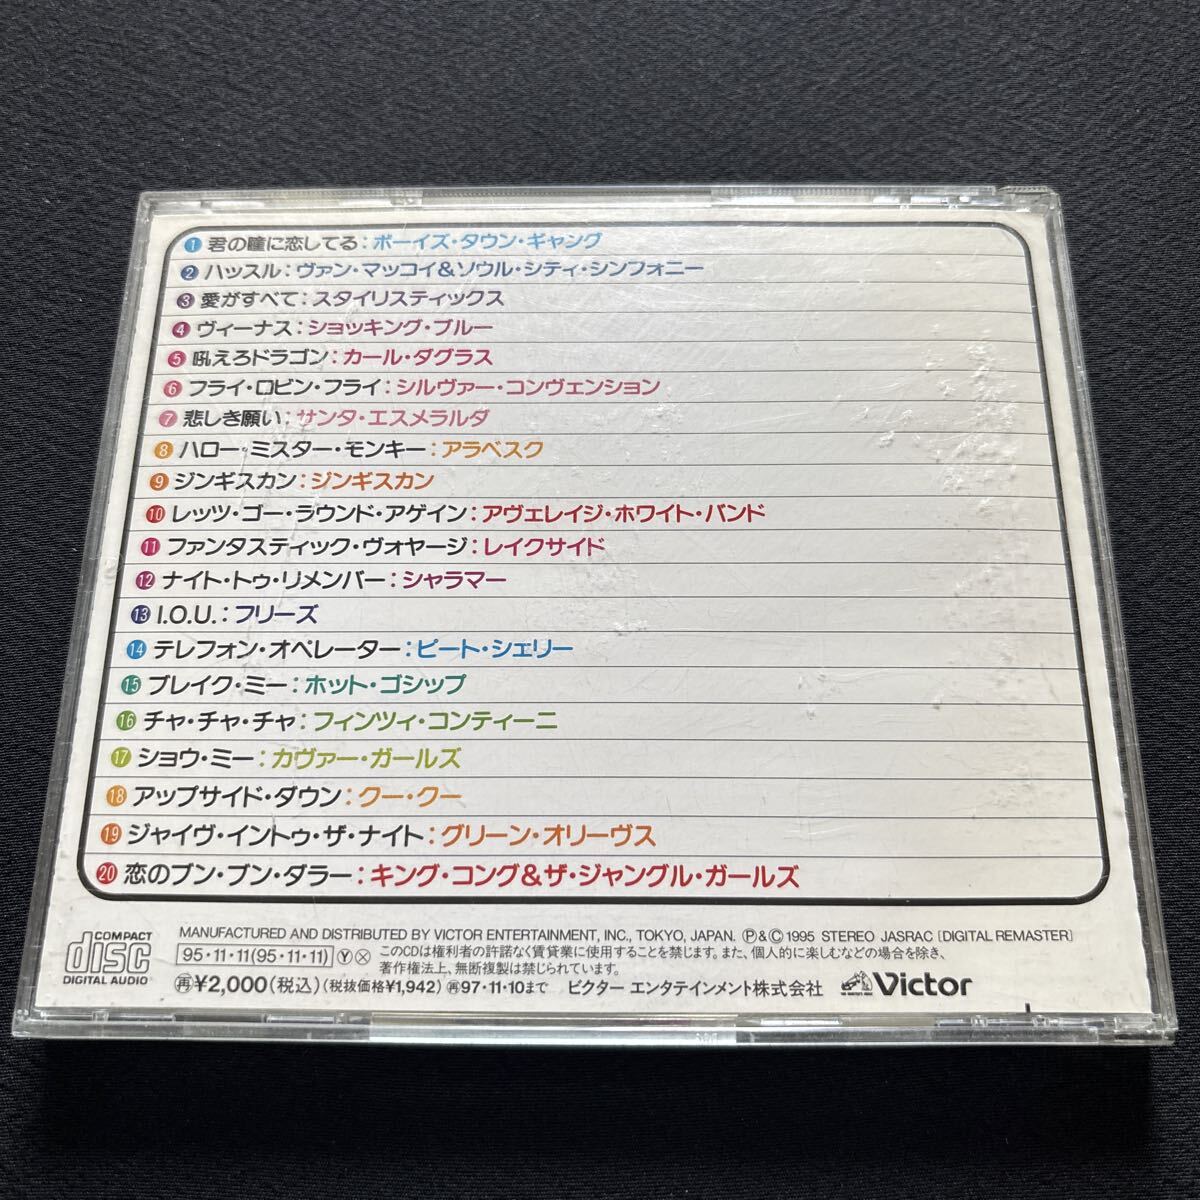 1 君の瞳に恋してる：ボーイズ・タウン・ギャング
2 ハッスル：ヴァン・マッコイ&ソウル・シティ・シンフォニー
3 愛がすべて：スタイリスティックス
4 ヴィーナス：ショッキング・ブルー
5 吼えろドラゴン：カール・ダグラス
6 フライ・ロビン・フライ：シルヴァー・コンヴェンション
7 悲しき願い：サンタ・エスメラルダ
8 ハロー・ミスター・モンキー：アラベスク
9 ジンギスカン：ジンギスカン
10 レッツ・ゴー・ラウンド・アゲイン：アヴェレイジ・ホワイト・バンド
11 ファンタスティック・ヴォヤージ：レイクサイド
12 ナイト・トゥ・リメンバー：シャラマー
13 I.O.U.：フリーズ
14 テレフォン・オペレーター：ピート・シェリー
15 ブレイク・ミー：ホット・ゴシップ
16 チャ・チャ・チャ：フィンツィ・コンティーニ
17 ショウ・ミー：カヴァー・ガールズ
18 アップサイド・ダウン：クー・クー
19 ジャイヴ・イントゥ・ザ・ナイト：グリーン・オリーヴス
20 恋のブン・ブン・ダラー：キング・コング&ザ・ジャングル・ガールズ
COMPACT
disc
DIGITAL AUDIO
MANUFACTURED AND DISTRIBUTED BY VICTOR ENTERTAINMENT, INC., TOKYO, JAPAN. Ⓟ&Ⓒ 1995 STEREO JASRAC [DIGITAL REMASTER]
95・11・11(95・11・11) Ⓨ Ⓧ
このCDは権利者の許諾なく賃貸業に使用することを禁じます。また、個人的に楽しむなどの場合を除き、
著作権法上、無断複製は禁じられています。
再¥2,000(税込)(税抜価格¥1,942) 再97・11・10まで ビクター エンタテインメント株式会社
Victor